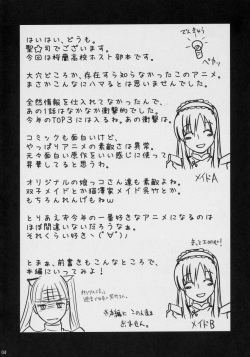 はいはい、どうも。
聖☆司でございます。
今回は桜蘭高校ホスト部本です。
大穴どころか、存在すら知らなかったこのアニメ。
まさかこんなにハマるとは思いませんでした。
全然情報を仕入れてなかったんで、
あの1話はなかなか衝撃的でした。
今年のTOP3には入るね。あの衝撃は。
コミックも面白いけど、
やっぱりアニメの素敵さは異常。
元々面白い原作をいい感じに使って
昇華してると思うわ。
オリジナルの娘ッコさん達も素敵よね。
双子メイドとか猫澤家メイド呉竹とか。
もちろんれんげもねw
とりあえず今年の一番好きなアニメになるの
はほぼ間違いないだろうなぁ。
それくらい好き~(´∀`)♪
とまぁ、前書きもこんなところで、
本編にいってみよ!
でんきゅう
ペカッ
メイドA
メイドB
※本編に
この人達は
出ません。
04